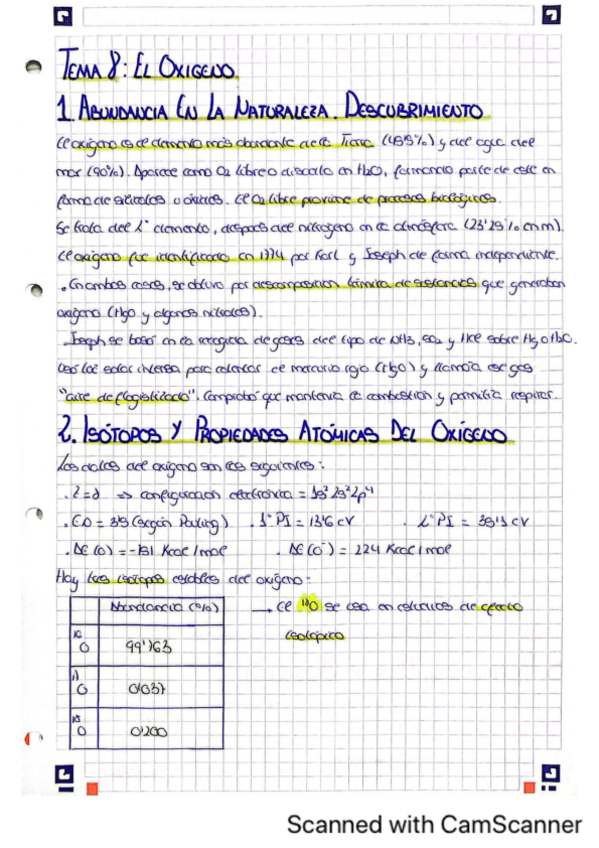 TEMA 8: EL OXIGENO
1. ABUNDANCIA EN LA NATURALEZA. DESCUBRIMIENTO
El oxígeno es el elemento más abundante de la Tierra (48'8%) y del agua del
mar (90%). Aparece como O2 libre o disuelto en H2O, formando parte de este en
forma de silicatos u óxidos. El O2 libre proviene de procesos biológicos.
Se trata del 2º elemento, después del nitrógeno en la atmósfera (23'29% en m).
El oxígeno fue identificado en 1774 por Karl y Joseph de forma independiente.
. En ambos casos, se obtuvo por descomposición térmica de sustancias que generaban
oxígeno (HgO y algunos nitratos).
Joseph se basó en la recogida de gases del tipo de NH3, SO2 y HCl sobre Hg o H2O.
Usó luz solar intensa para calentar el mercurio rojo (HgO) y llamó a ese gas
"aire deflogistizado". Comprobó que mantenía la combustión y permitía respirar.
2. ISÓTOPOS Y PROPIEDADES ATÓMICAS DEL OXÍGENO
Los datos del oxígeno son los siguientes:
. Z=8 => configuración electrónica = 1s² 2s² 2p⁴
. EN = 3'5 (según Pauling) . 1º PI = 13'6 eV . 2º PI = 35'1 eV
. AE (O) = -141 Kcal/mol . AE (O⁻) = 224 Kcal/mol
Hay tres isótopos estables del oxígeno:
Abundancia (%) → El ¹⁸O se usa en estudios de efecto
isotópico
¹⁶O 99'763
¹⁷O 0'037
¹⁸O 0'200
Scanned with CamScanner